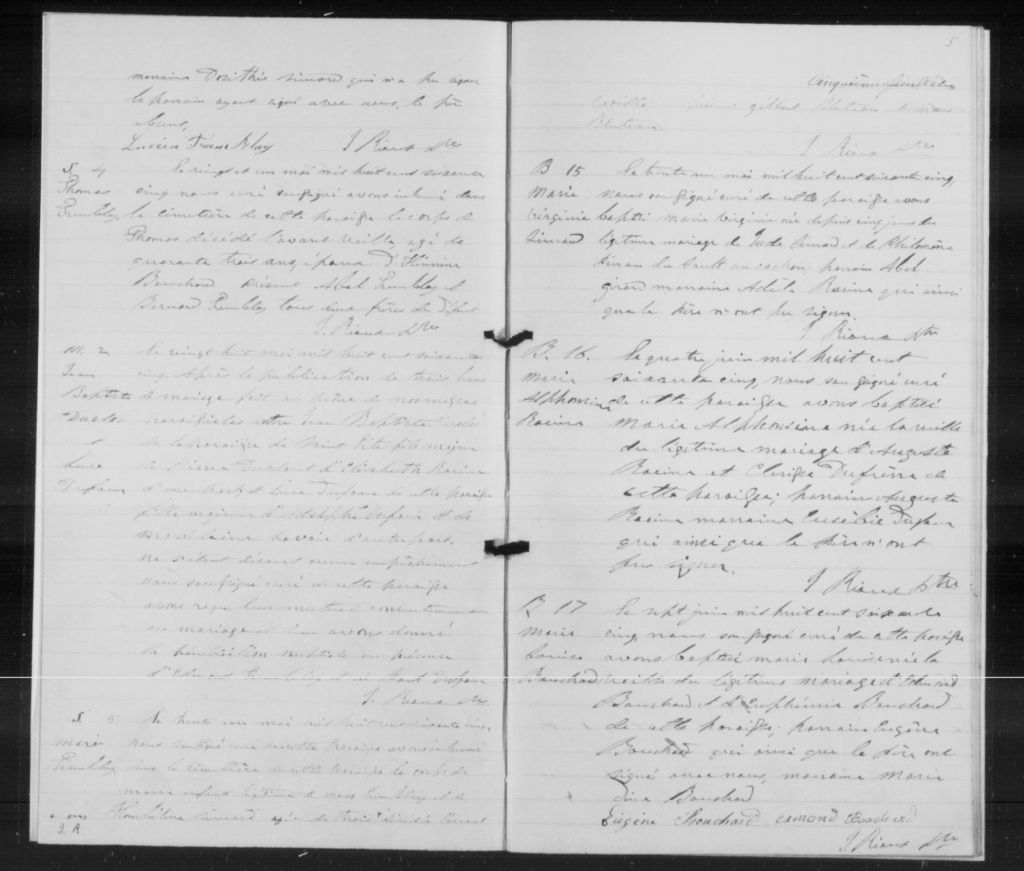 marraine Dosithée Simard qui n'a pu signer
le parrain ayant signé avec nous, le père
absent,
Lucien Tremblay J. Rioux Ptre
S. 4
Thomas
Tremblay
Le vingt et un mai mil huit cent soixante
cinq nous curé soussigné avons inhumé dans
le cimetière de cette paroisse le corps de
Thomas décédé l'avant veille, agé de
quarante trois ans, époux d'
Bouchard. Présent Abel Tremblay et
Bernard Tremblay tous deux frères du défunt
J. Rioux Ptre
M. 2
Jean
Baptiste
Duclos
et
Luce
Dufour
Le vingt huit mai mil huit cent soixante
cinq, Après la publication de trois bans
de mariage fait au prône de nos messes
paroissiales entre Jean Baptiste
de la paroisse de Saint fils majeur
de Pierre et d'Elisabeth Racine
d'une part, et Luce Dufour de cette paroisse
fille majeure d'Adolphe Dufour et de
Madeleine Lavoie d'autre part,
ne s'étant découvert aucun empêchement
nous soussigné curé de cette paroisse
avons reçu leur mutuel consentement
au mariage et leur avons donné
la bénédiction nuptiale en présence
d'Edmond Tremblay et de Dufour
J. Rioux Ptre
S. 5
Marie
Tremblay
Le trente un mai mil huit cent soixante cinq,
nous soussigné curé de cette paroisse avons inhumé
dans le cimetière de cette paroisse le corps de
marie enfant légitime de Tremblay et de
Simard agée de trois décédée
J. R.
5
Cinquième feuillet
veille présent gilbert Bluteau et
Bluteau
J. Rioux Ptre
B 15
Marie
Virginie
Simard
Le trente un mai mil huit cent soixante cinq,
nous soussigné curé de cette paroisse avons
baptisé marie virginie née depuis cinq jours du
légitime mariage de Jude Simard et de Philomène
Simard du Sault au cochon; parrain Abel
Girard marraine Adèle Racine qui ainsi
que le père n'ont pu signer.
J. Rioux Ptre
B. 16.
Marie
Alphonsine
Racine
Le quatre juin mil huit cent
soixante cinq, nous soussigné curé
de cette paroisse avons baptisé
Marie Alphonsine née la veille
du légitime mariage d'Auguste
Racine et Clarisse Dufresne de
cette paroisse; parrain Auguste
Racine marraine Eusébie Dufour
qui ainsi que le père n'ont
pu signer.
J. Rioux Ptre
B 17
Marie
Louise
Bouchard
Le sept juin mil huit cent soixante
cinq, nous soussigné curé de cette paroisse
avons baptisé marie Louise née la
veille du légitime mariage d'Edmond
Bouchard et d'Euphémie Bouchard
de cette paroisse; parrain Eugène
Bouchard qui ainsi que le père ont
signé avec nous, marraine Marie
Dina Bouchard
Eugène Bouchard edmond Bouchard
J. Rioux Ptre